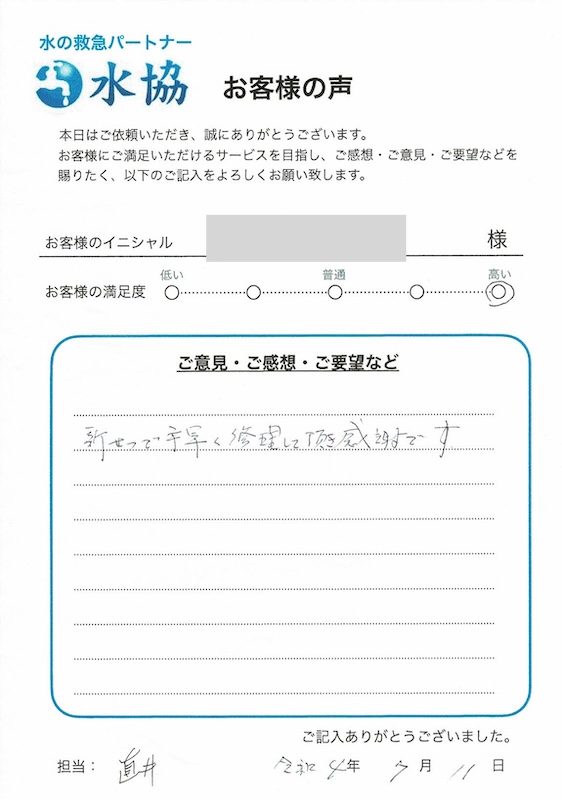 水の救急パートナー
水協 お客様の声
本日はご依頼いただき、誠にありがとうございます。
お客様にご満足いただけるサービスを目指し、ご感想・ご意見・ご要望などを
賜りたく、以下のご記入をよろしくお願い致します。
お客様のイニシャル 様
低い 普通 高い
お客様の満足度
ご意見・ご感想・ご要望など
新せつで手早く修理して頂き感謝です
ご記入ありがとうございました。
担当： 直井 令和4年 7月 11日